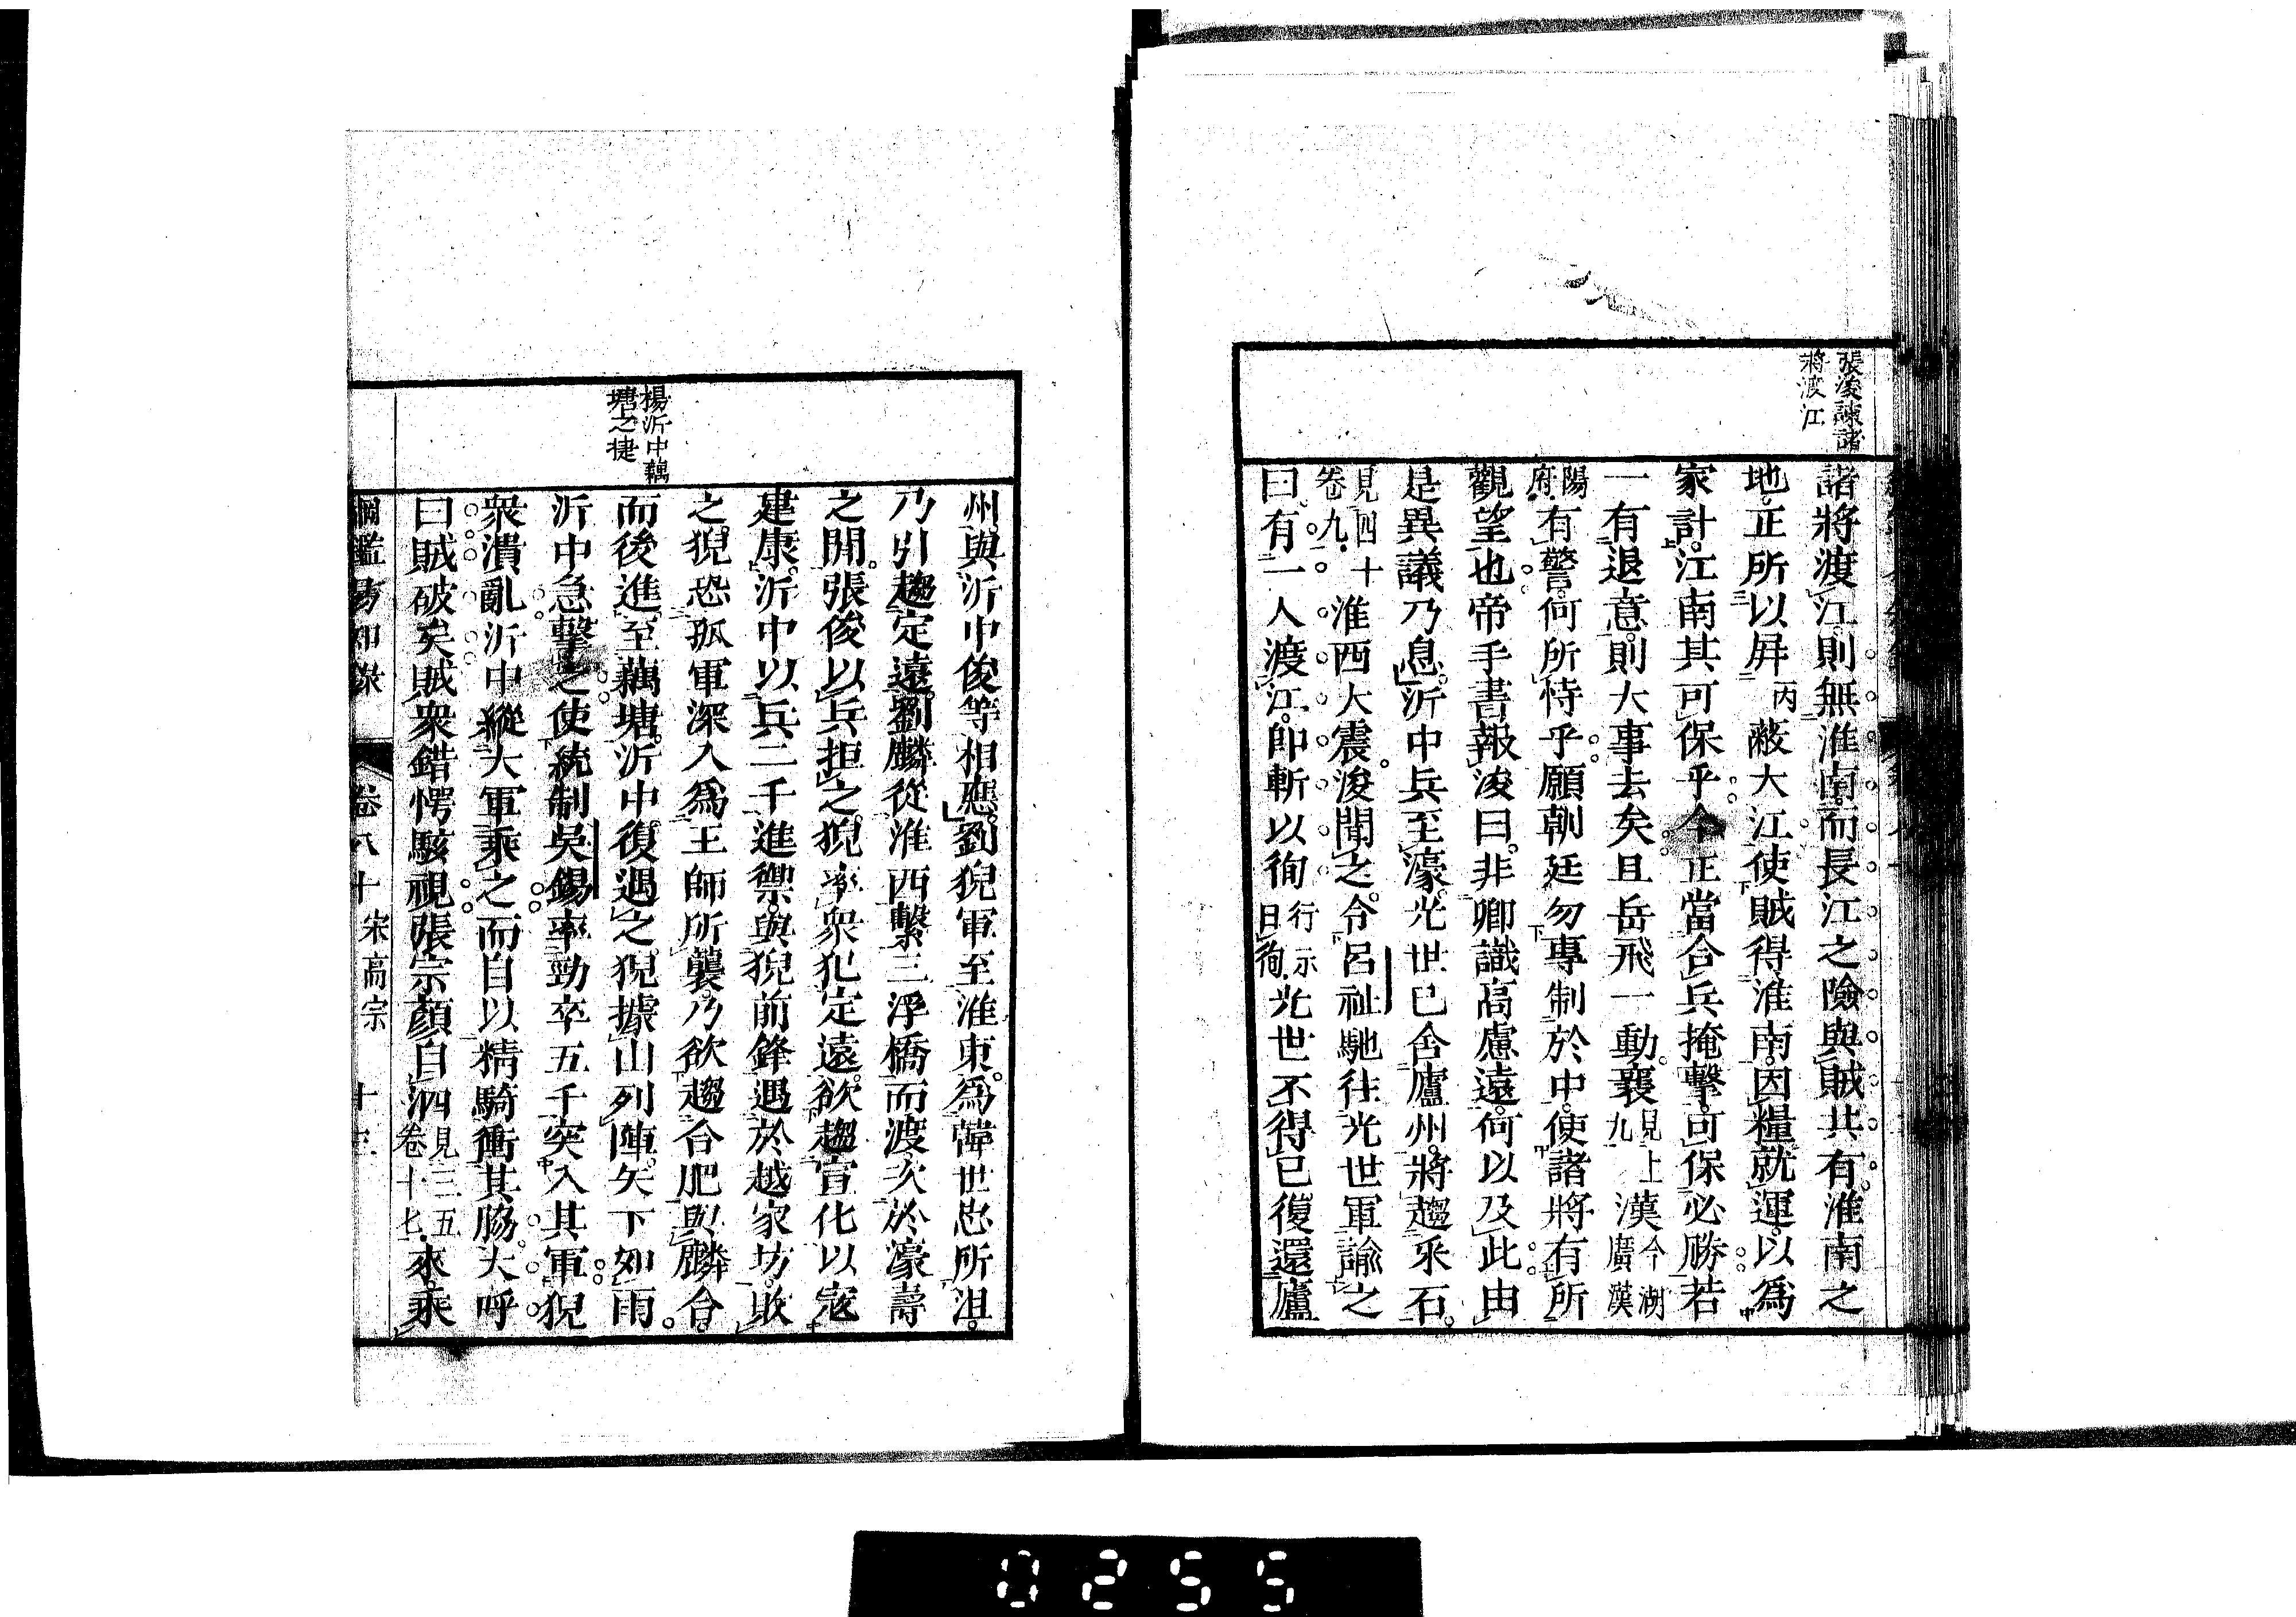 張浚諫諸
將渡江
諸將渡江則無淮南而長江之險與賊共有淮南之
地正所以屛丙蔽大江使賊得淮南因糧就運以爲
家計江南其可保乎今正當合兵掩擊可保必勝若
一有退意則大事去矣且岳飛一動襄見上九漢今湖廣漢
陽府有警何所恃乎願朝廷勿專制於中使諸將有所
觀望也帝手書報浚曰非卿識高慮遠何以及此由
是異議乃息沂中兵至濠光世已舍廬州將趨采石
見四十卷九淮西大震浚聞之令呂祉馳往光世軍諭之
曰有一人渡江卽斬以徇行示曰徇光世不得已復還廬
楊沂中藕
塘之捷
州與沂中俊等相應劉猊軍至淮東爲韓世忠所沮
乃引趨定遠劉麟從淮西繫三浮橋而渡次於濠壽
之閒張俊以兵拒之猊率衆犯定遠欲趨宣化以寇
建康沂中以兵二千進禦與猊前鋒遇於越家坊敗
之猊恐孤軍深入爲王師所襲乃欲趨合肥與麟合
而後進至藕塘沂中復遇之猊據山列陣矢下如雨
沂中急擊之使統制吳錫率勁卒五千突入其軍猊
衆潰亂沂中縱大軍乘之而自以精騎衝其脇大呼
曰賊破矣賊衆錯愕駭視張宗顏自泗見三五卷十七來乘
綱鑑易知錄 卷八十 宋高宗
0255